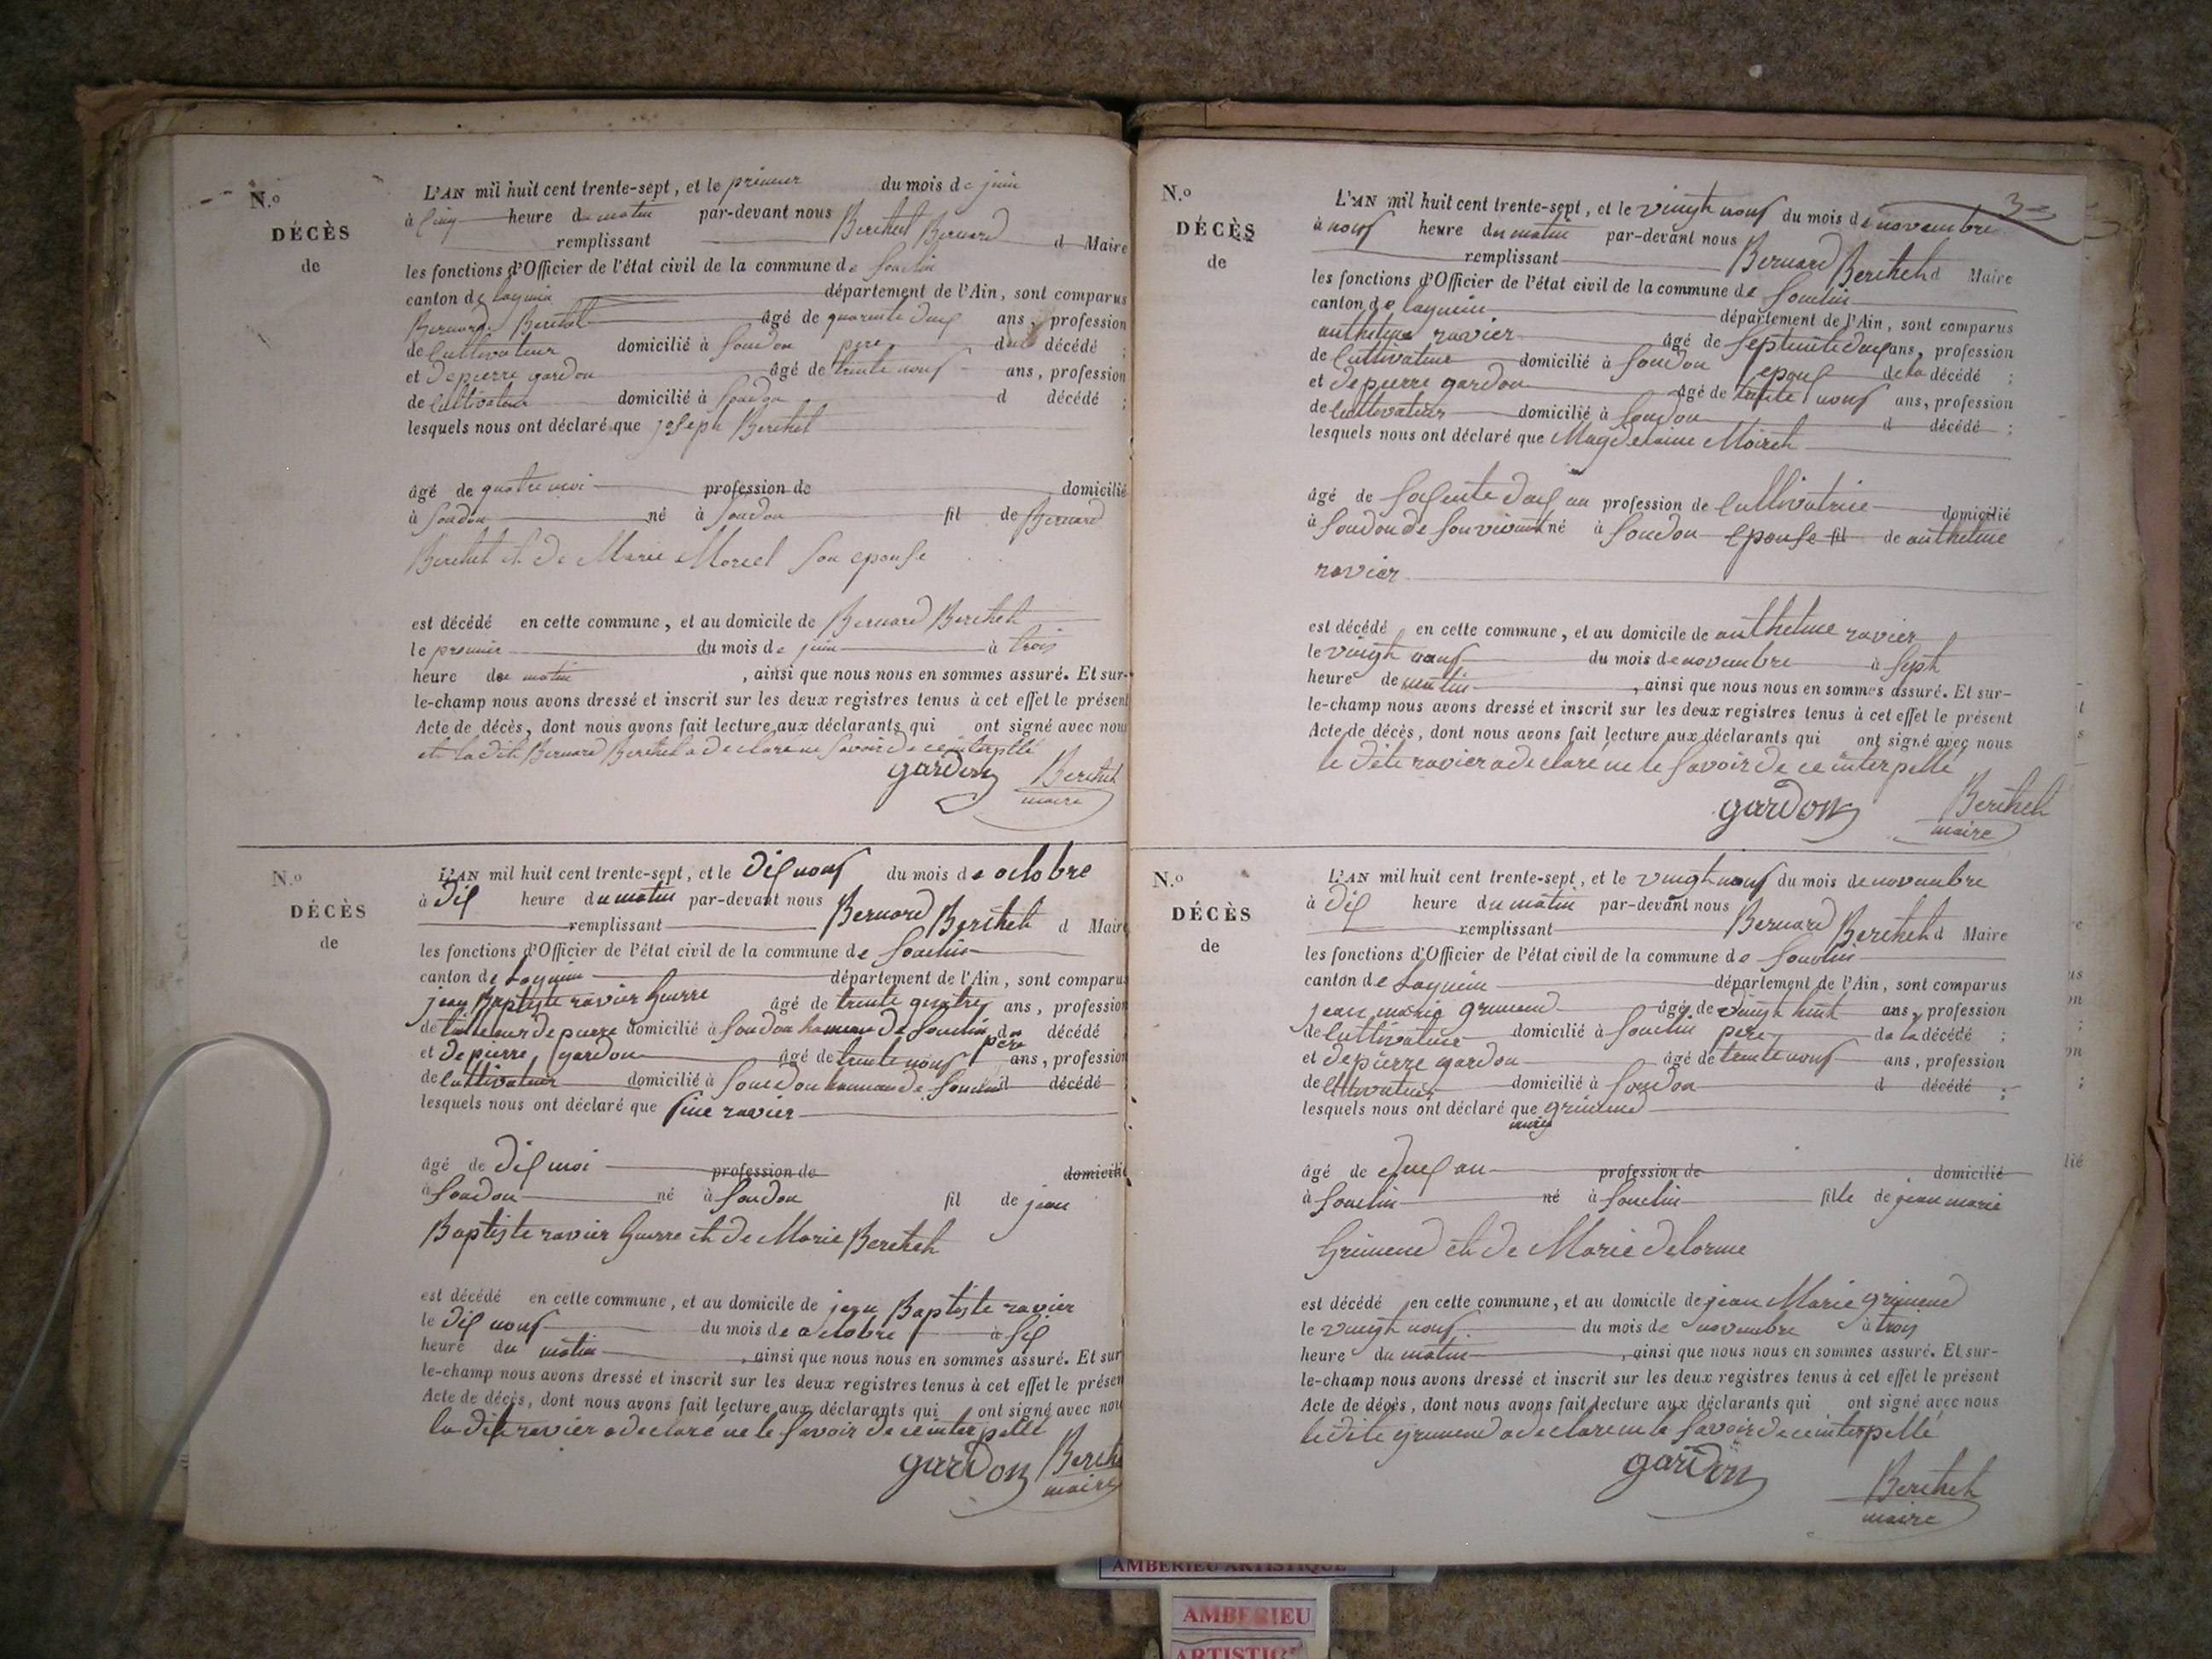 N.º
DÉCÈS
de
L'AN mil huit cent trente-sept, et le premier du mois de juin
à cinq heure du matin par-devant nous Berthet Bernard
remplissant d Maire
les fonctions d'Officier de l'état civil de la commune de Souclin
canton de lagnieu département de l'Ain, sont comparus
Bernard Berthet âgé de quarente deux ans, profession
de Cultivateur domicilié à Soudon pere du décédé ;
et de pierre gardon âgé de trente nouf ans, profession
de Cultivateur domicilié à Soudon d décédé ;
lesquels nous ont déclaré que joseph Berthet
âgé de quatre moi profession de domicilié
à Soudon né à Soudon fil de Bernard
Berthet et de Marie Morel son epouse
est décédé en cette commune, et au domicile de Bernard Berthet
le premier du mois de juin à trois
heure de matin , ainsi que nous nous en sommes assuré. Et sur-
le-champ nous avons dressé et inscrit sur les deux registres tenus à cet effet le présent
Acte de décès, dont nous avons fait lecture aux déclarants qui ont signé avec nou
et la dit Bernard Berthet a declare ne savoir de ce interpellé
gardon Berthet
maire
N.º
DÉCÈS
de
L'AN mil huit cent trente-sept, et le dix nouf du mois de octobre
à dix heure du matin par-devant nous Bernard Berthet d Maire
remplissant
les fonctions d'Officier de l'état civil de la commune de Souclin
canton de Lagnieu département de l'Ain, sont comparus
jean Baptiste ravier Guerre âgé de trente quatre ans, profession
de tailleur de pierre domicilié à Soudon hameau de Souclin du décédé
pere
et de pierre gardon âgé de trente nouf ans, profession
de Cultivateur domicilié à Soudon hameau de Souclin d décédé
lesquels nous ont déclaré que ravier
âgé de dix moi profession de domicilié
à Soudon né à Soudon fil de jean
Baptiste ravier Guerre et de Marie Berthet
est décédé en cette commune, et au domicile de jean Baptiste ravier
le dix nouf du mois de octobre à six
heure du matin , ainsi que nous nous en sommes assuré. Et sur
le-champ nous avons dressé et inscrit sur les deux registres tenus à cet effet le présen
Acte de décès, dont nous avons fait lecture aux déclarants qui ont signé avec nou
la dit ravier a declaré ne le savoir de ce interpellé
gardon Berthe
maire
3
N.º
DÉCÈS
de
L'AN mil huit cent trente-sept, et le vingt nouf du mois de novembre
à nouf heure du matin par-devant nous Bernard Berthet d Maire
remplissant
les fonctions d'Officier de l'état civil de la commune de Souclin
canton de lagnieu département de l'Ain, sont comparus
anthelme ravier âgé de Septente deux ans, profession
de Cultivateur domicilié à Soudon epoux de la décédé ;
et de pierre gardon âgé de trente nouf ans, profession
de Cultivateur domicilié à Soudon d décédé ;
lesquels nous ont déclaré que Magdelaine Moiret
âgé de Soixente deux an profession de Cultivatrice domicilié
à Soudon de son vivant né à Soudon epouse fil de anthelme
ravier
est décédé en cette commune, et au domicile de anthelme ravier
le vingt nouf du mois de novembre à Sept
heure de matin , ainsi que nous nous en sommes assuré. Et sur-
le-champ nous avons dressé et inscrit sur les deux registres tenus à cet effet le présent
Acte de décès, dont nous avons fait lecture aux déclarants qui ont signé avec nous
le dite ravier a declaré ne le savoir de ce interpellé
gardon Berthet
maire
N.º
DÉCÈS
de
L'AN mil huit cent trente-sept, et le vingt nouf du mois de novembre
à dix heure du matin par-devant nous Bernard Berthet d Maire
remplissant
les fonctions d'Officier de l'état civil de la commune de Souclin
canton de Lagnieu département de l'Ain, sont comparus
jean marie grimend âgé de vingt huit ans, profession
de Cultivateur domicilié à Souclin pere de la décédé ;
et de pierre gardon âgé de trente nouf ans, profession
de Cultivateur domicilié à Soudon d décédé ;
lesquels nous ont déclaré que grimend
marie
âgé de deux an profession de domicilié
à Souclin né à Souclin fille de jean marie
Grimend et de Marie delorme
est décédé en cette commune, et au domicile de jean Marie grimend
le vingt nouf du mois de novembre à trois
heure du matin , ainsi que nous nous en sommes assuré. Et sur-
le-champ nous avons dressé et inscrit sur les deux registres tenus à cet effet le présent
Acte de décès, dont nous avons fait lecture aux déclarants qui ont signé avec nous
le dite grimend a declare ne le savoir de ce interpellé
gardon Berthet
maire
AMBERIEU ARTISTIQUE
AMBERIEU